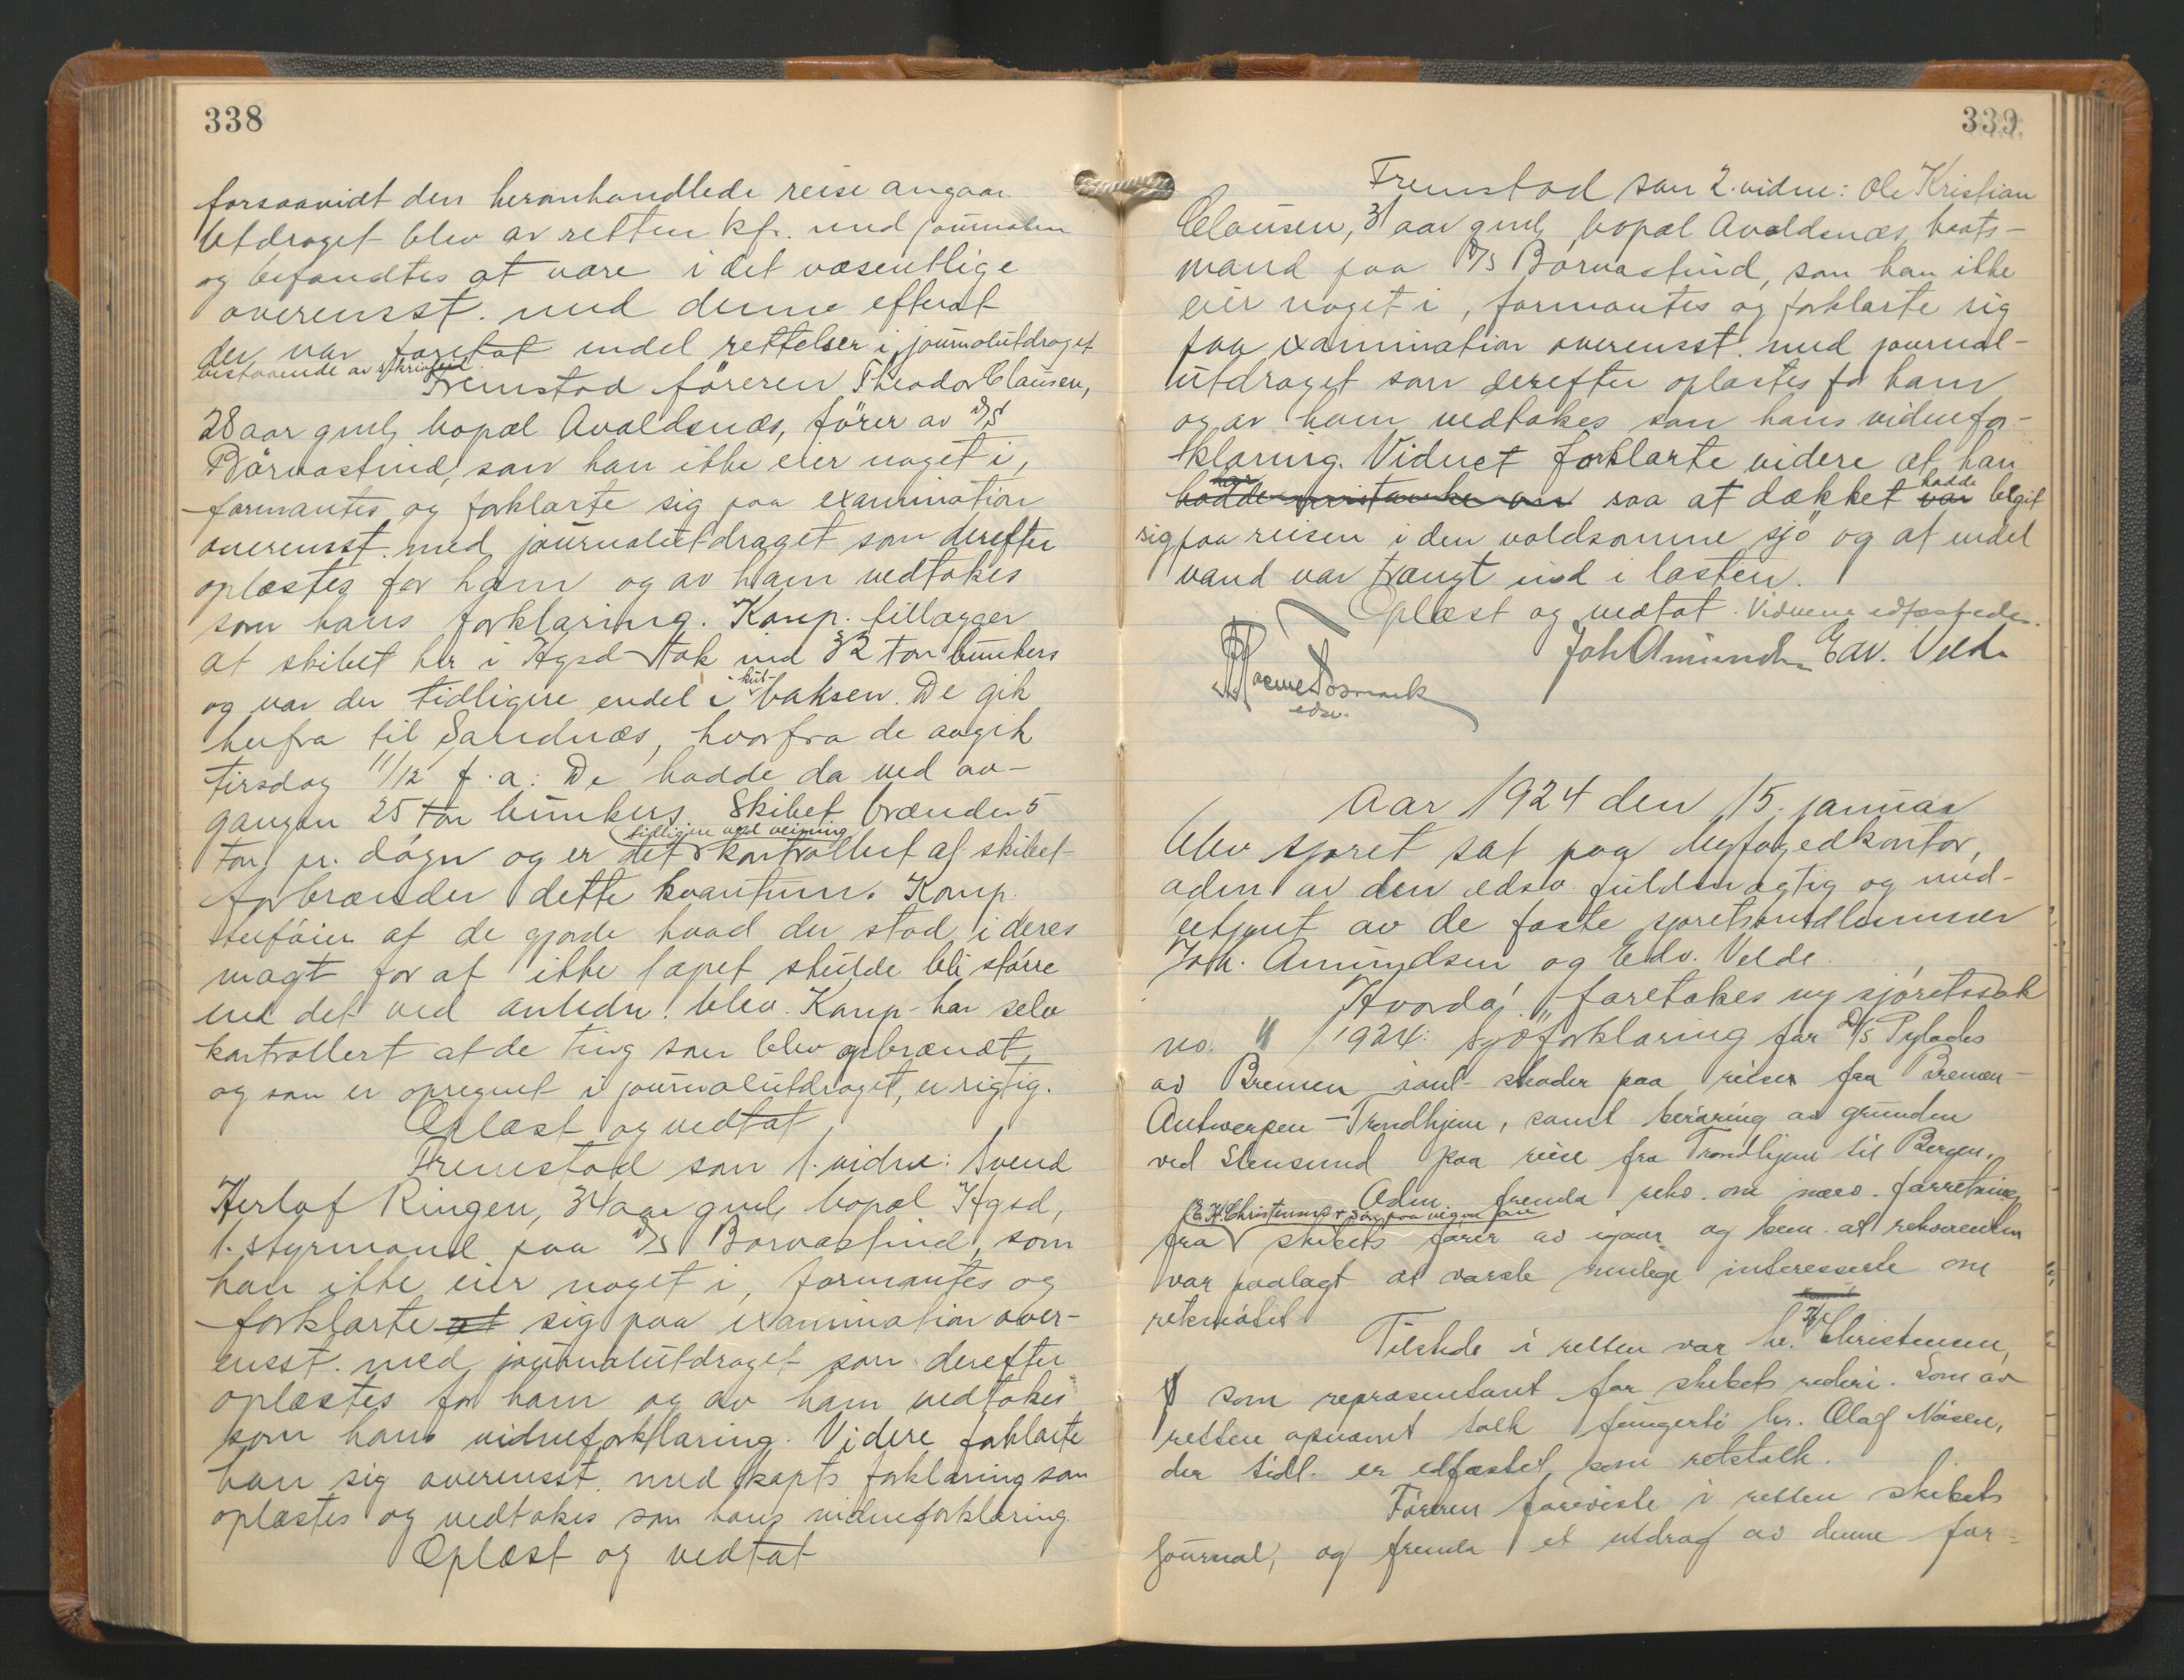 338
forsaavidt den heromhandlede reise angaar.
Utdraget blev av retten kfr. med journalen
og befandtes at være i det væsentlige
overensst. med denne efterat
der var foretat endel rettelser i journalutdraget
bestaaende av skrivfeil.
Fremstod föreren Theodor Clausen,
28 aar gml, bopæl Avaldsnæs, förer av D/S
Börvastind, som han ikke eier noget i,
formantes og forklarte sig paa examination
overensst. med journalutdraget som derefter
oplæstes for ham og av ham vedtokes
som hans forklaring. Komp. tillægger
at skibet her i Hgsd tok ind 32 ton bunkers
og var der tidligere endel i kul-
boksen. De gik
herfra til Sandnæs, hvorfra de avgik
tirsdag 11/12 f.a: De hadde da ved av-
gangen 25 ton bunkers. Skibet brænder 5
ton pr. døgn og er det tidligere ved veining kontrollert at skibet
forbrænder dette kvantum. Komp.
tilföier at de gjorde hvad der stod i deres
magt for at ikke tapet skulde bli större
end det ved anledn! blev. Komp. har selv
kontrollert at de ting som blev opbrændt,
og som er opregnet i journalutdraget, er rigtig.
Oplæst og vedtat
Fremstod som 1. vidne: Svend
Herlof Ringen, 34 aar gml, bopæl Hgsd,
1. styrmand paa D/S Borvastind, som
han ikke eier noget i, formantes og
forklarte at sig paa examination over-
ensst. med journalutdraget som derefter
oplæstes for ham og av ham vedtokes
som hans vidneforklaring. Videre forklarte
han sig overensst. med kapts forklaring som
oplæstes og vedtokes som hans vidneforklaring.
Oplæst og vedtat
339
Fremstod som 2. vidne: Ole Kristian
Clausen, 31 aar gml, bopæl Avaldsnæs, baats-
mand paa D/S Börvastind, som han ikke
eier noget i, formantes og forklarte sig
paa examination overensst. med journal-
utdraget som derefter oplæstes for ham
og av ham vedtokes som hans vidnefor-
klaring. Vidnet forklarte videre at han
hadde saa at dækket var hadde begit
sig paa reisen i den voldsomme sjö og at endel
vand var trængt ind i lasten.
Oplæst og vedtat. Vidnene edfæstedes.
Joh Amundsen Edv. Velde
edsv.
Aar 1924 den 15. januar
blev sjøret sat paa byfogedkontor,
adm. av den edsv. fuldmægtig og med-
betjent av de faste sjøretsmedlemmer
Joh. Amundsen og Edv. Velde.
Hvorda: foretokes ny sjøretssak
no. " /1924: sjöforklaring for D/S Pylades
av Bremen i anl. skader paa reisen fra Bremen-
Antwerpen - Trondhjem, samt beröring av grunden
ved Stensund paa reise fra Trondhjem til Bergen.
Adm. fremla rekv. om nærv. forretning
fra E. H. Christensen skibets förer av igaar og bem. at rekvirenten
var paalagt at varsle mulige interesserte om
retsmötet
Tilstede i retten var hr. Christensen,
som repræsentant for skibets rederi. Som av
retten opnævnt tolk fungerte hr. Olaf Näsen,
der tidl. er edfæstet som retstolk.
Föreren foreviste i retten skibets
Journal, og fremla et utdrag av denne for-